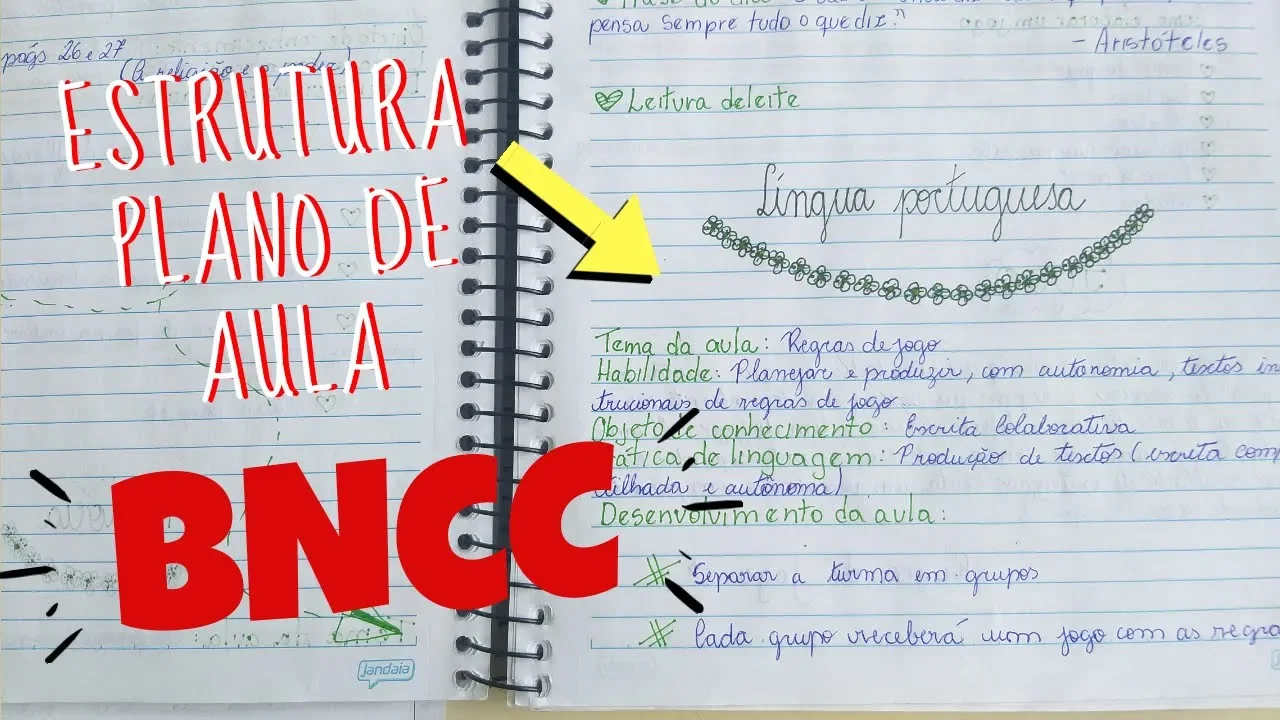 págs 26 e 27
(A religião e o poder)
ESTRUTURA
PLANO DE
AULA
BNCC
Jandaia
pensa sempre tudo o que diz."
- Aristóteles
Leitura deleite
Língua portuguesa
Tema da aula: Regras de jogo
Habilidade: Planejar e produzir, com autonomia, textos ins
trucionais de regras de jogo...
Objeto de conhecimento: Escrita colaborativa
ática de linguagem: Produção de textos (escrita comp
tilhada e autônoma)
Desenvolvimento da aula:
Separar a turma em grupos
Cada grupo receberá um jogo com as regra